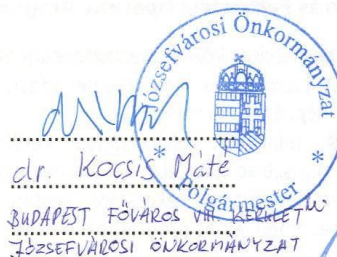 Józsefvárosi Önkormányzat
* Polgármester *
dr. Kocsis Máté
BUDAPEST FŐVÁROS VIII. KERÜLET
JÓZSEFVÁROSI ÖNKORMÁNYZAT